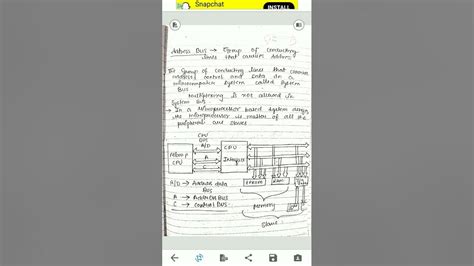 Snapchat
INSTALL
Address Bus → Group of conducting
lines that carries Address
Group of conducting lines that
address, control and Data in a
microcomputer system called System
Bus
Multiplexing is not allowed in
System Bus
→ In a Microprocessor based system design,
the microprocessor is master of all the
peripheral are slaves
CPU
BUS
A/D
CPU
CPU
A
Interface
C
A/D → Address data
Bus
EPROM
RAM
A → Address Bus
C → Control BUS
Memory
Slave